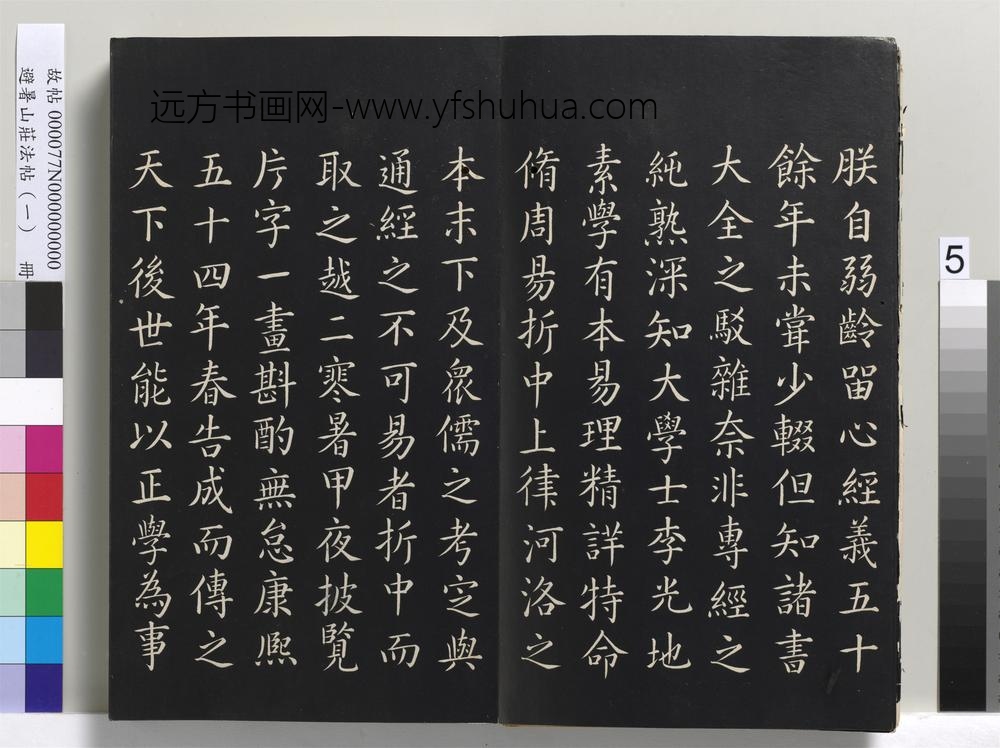 朕自弱齡留心經義五十
餘年未甞少輟但知諸書
大全之駁雜奈非專經之
純熟深知大學士李光地
素學有本易理精詳特命
脩周易折中上律河洛之
本末下及眾儒之考定與
通經之不可易者折中而
取之越二寒暑甲夜披覽
片字一畫斟酌無怠康熙
五十四年春告成而傳之
天下後世能以正學為事
远方书画网-www.yfshuhua.com
故帖 000077N000000000
避暑山莊法帖(一) 冊
5